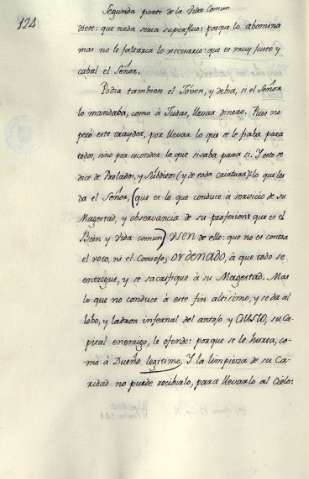 124
Segunda parte de la Vida Comun
diere: que nada seria superfluo: porque lo abomina
mar no le faltaria lo necesario: que es muy justo y
cabal el Señor.
Podia tambien el Joven, y debia, si el Señor
lo mandaba, como à Judas, llevar dinero. Pues no
pecò este traydor, por llevar lo que se le fiaba para
todos, sino por esconder lo que sisaba para si. Y esto se
dice de Prelados, y Subditos (y de todo Christiano) lo que les
da el Señor, (que es lo que conduce à servicio de su
Magestad, y observancia de su profesion: que es el
Bien y Vida comun) usen de ello: que no es contra
el voto, ni el Consejo, ordenado, à que todo se
entregue, y se sacrifique à su Magestad. Mas
lo que no conduce à este fin altisimo, y se da al
lobo, y ladron infernal del antojo y Gusto, su Ca-
pital enemigo, le ofende: porque se le hurta, co-
mo à Dueño legitimo. Y la limpieza de su Ca-
ridad no puede recibirlo, para llevarlo al Cielo: